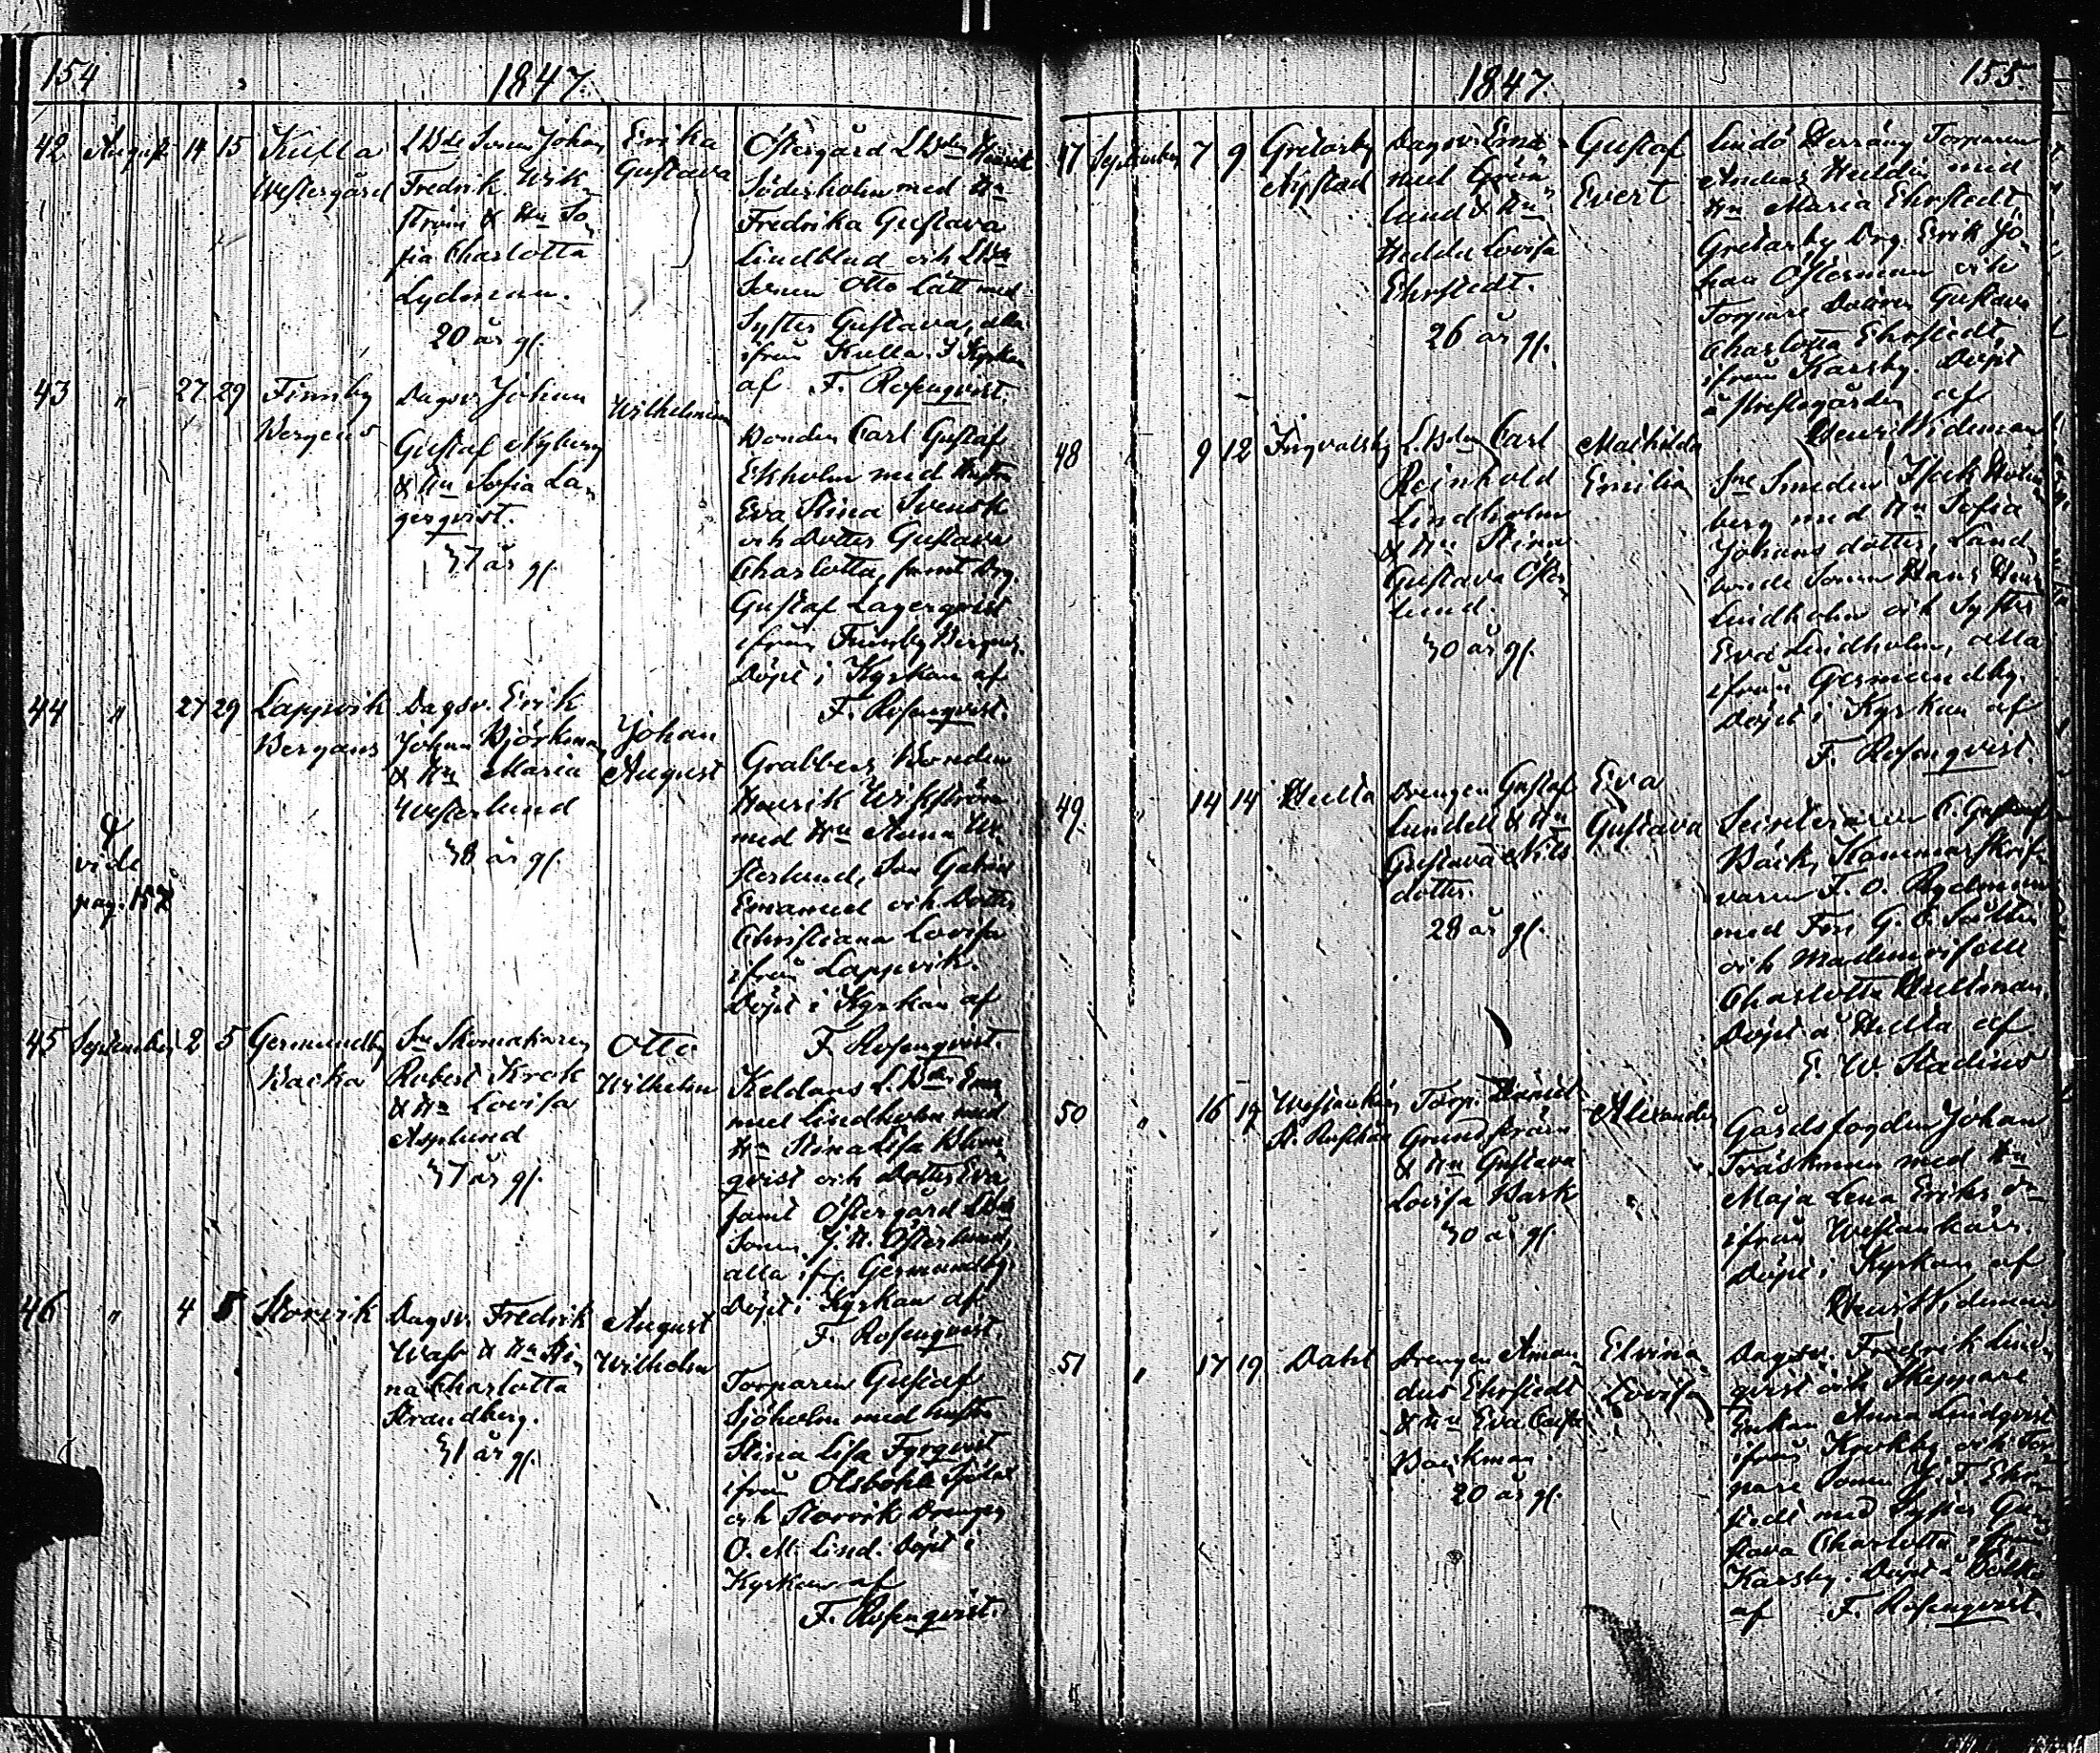 154
1847.
42 August 14 15
Kulla
Westergård
LBde Sonen Johan
Fredrik Wik-
ström & Hu So-
fia Charlotta
Lydman.
20 år gl.
Erika
Gustava
Östergård LBden Henrik
Söderholm med Hu
Fredrika Gustava
Lindblad och LBde
Sonen Otto Lätt med
Syster Gustava, alla
ifrån Kulla. I Kyrkan
af F. Rosenqvist.
43 " 27 29
Finnby
Bergans
Dagsv. Johan
Gustaf Nyberg
& Hu Sofia La-
gerqvist.
37 år gl.
Wilhelmina
Bonden Carl Gustaf
Ekholm med Hustru
Eva Stina Svensk
och Dotter Gustava
Charlotta, samt Drg.
Gustaf Lagerqvist
ifrån Finnby Bergans.
Döpt i Kyrkan af
F. Rosenqvist.
44 " 27 29
Lappvik
Bergans
Dagsv. Erik
Johan Björkman
& Hu Maria
Westerlund
38 år gl.
Johan
August
Grabbens Bonden
Henrik Wikström
med Hu Anna We-
sterlund, Son Gabriel
Emanuel och Dotter
Christiana Lovisa
ifrån Lappvik.
Döpt i Kyrkan af
F. Rosenqvist.
vide
pag. 157
45 September 2 5
Germundby
Backa
Sne Skomakaren
Robert Krok
& Hu Lovisa
Asplund
37 år gl.
Otto
Wilhelm
Keldans L.Bden Ema-
nuel Lindholm med
Hu Stina Lisa Blom-
qvist och Dotter Eva
samt Östergård LBde
Sonen J. H. Österlund,
alla ifr. Germundby.
Döpt i Kyrkan af
F. Rosenqvist.
46 " 4 5
Storvik
Dagsv. Fredrik
Wass & Hu Sti-
na Charlotta
Strandberg.
31 år gl.
August
Wilhelm
Torparen Gustaf
Sjöholm med hustru
Stina Lisa Fyrqvist
ifrån Olsböle
och Storvik Drengen
O. M. Lind. Döpt i
Kyrkan af
F. Rosenqvist.
1847.
155.
47 September 7 9
Gretarby
Nystad
Dagsv. Ema-
nuel Grön-
lund & Hu
Hedda Lovisa
Ehrstedt.
26 år gl.
Gustaf
Evert
Lindö Herräng Torparen
Anders Helldin med
Hu Maria Ehrstedt
Gretarby Drg. Erik Jo-
han Österman och
Torpare Dottren Gustava
Charlotta Ehrstedt
ifrån Karsby. Döpt
å Prestegården af
Henr Wideman
48 " 9 12
Ingvalsby
L.Bden Carl
Reinhold
Lindholm
& Hu Stina
Gustava Öster-
lund.
30 år gl.
Mathilda
Emilia
Sne Smeden Isak Holm-
berg med Hu Sofia
Johans dotter, Land-
bonde Sonen Hans Henr
Lindholm och Syster
Eva Lindholm, alla
ifrån Germundby.
Döpt i Kyrkan af
F. Rosenqvist.
49 " 14 14
Hulta
Drengen Gustaf
Lundell & Hu
Gustava Nils
dotter.
28 år gl.
Eva
Gustava
C. Gustaf
Bäck, Kammarskrif-
varen F. O. Rydman
med Fru G. C.
och Mademoiselle
Charlotta Hultman.
Döpt å Hulta af
E. W. Stadius
50 " 16 19
Westankärr
Torp. Daniel
Grundström
& Hu Gustava
Lovisa Bark
30 år gl.
Alexander
Gårdsfogden Johan
Träskman med Hu
Maja Lena Eriks dr
ifrån Westankärr.
Döpt i Kyrkan af
Henr Wideman
51 " 17 19
Dahl
Drengen Aman-
dus Ehrstedt
& Hu Eva Caisa
Backman.
20 år gl.
Elvina
Lovisa
Dagsv. Fredrik Lind-
qvist och Skeppare
Enkan Anna Lindqvist
ifrån Krokby och Tor-
pare Sonen J. F. Ehr-
stedt med Syster Gu-
stava Charlotta ifrån
Karsby. Döpt å Dölka
af F. Rosenqvist.